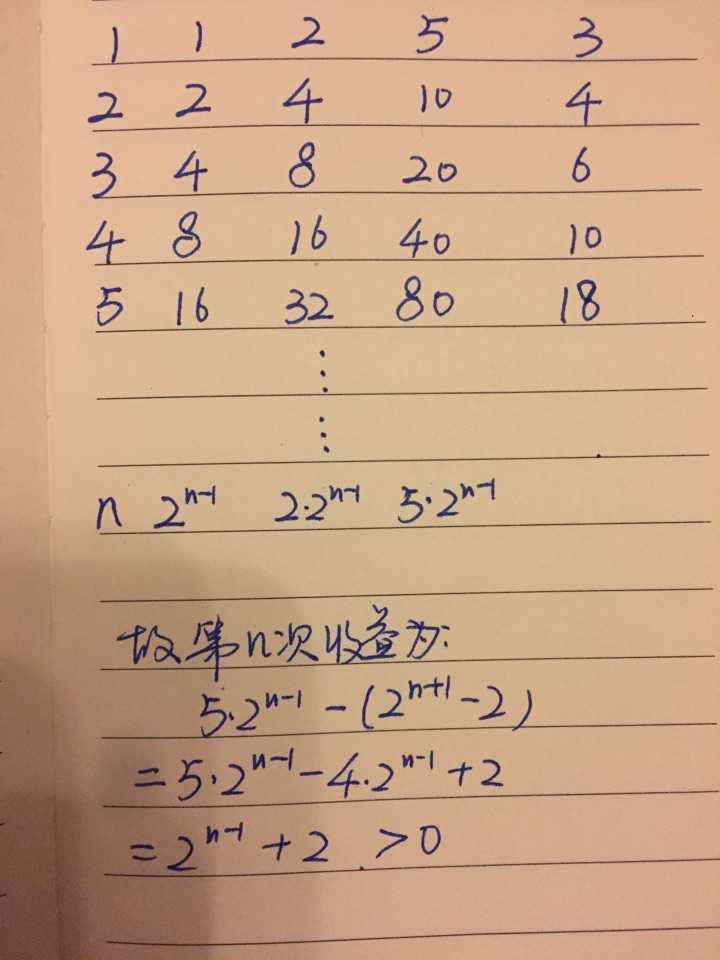 1 1 2 5 3
2 2 4 10 4
3 4 8 20 6
4 8 16 40 10
5 16 32 80 18
⋮
⋮
n 2^{n-1} 2·2^{n-1} 5·2^{n-1}
故第n次收益为:
5·2^{n-1} - (2^{n+1} - 2)
= 5·2^{n-1} - 4·2^{n-1} + 2
= 2^{n-1} + 2 > 0